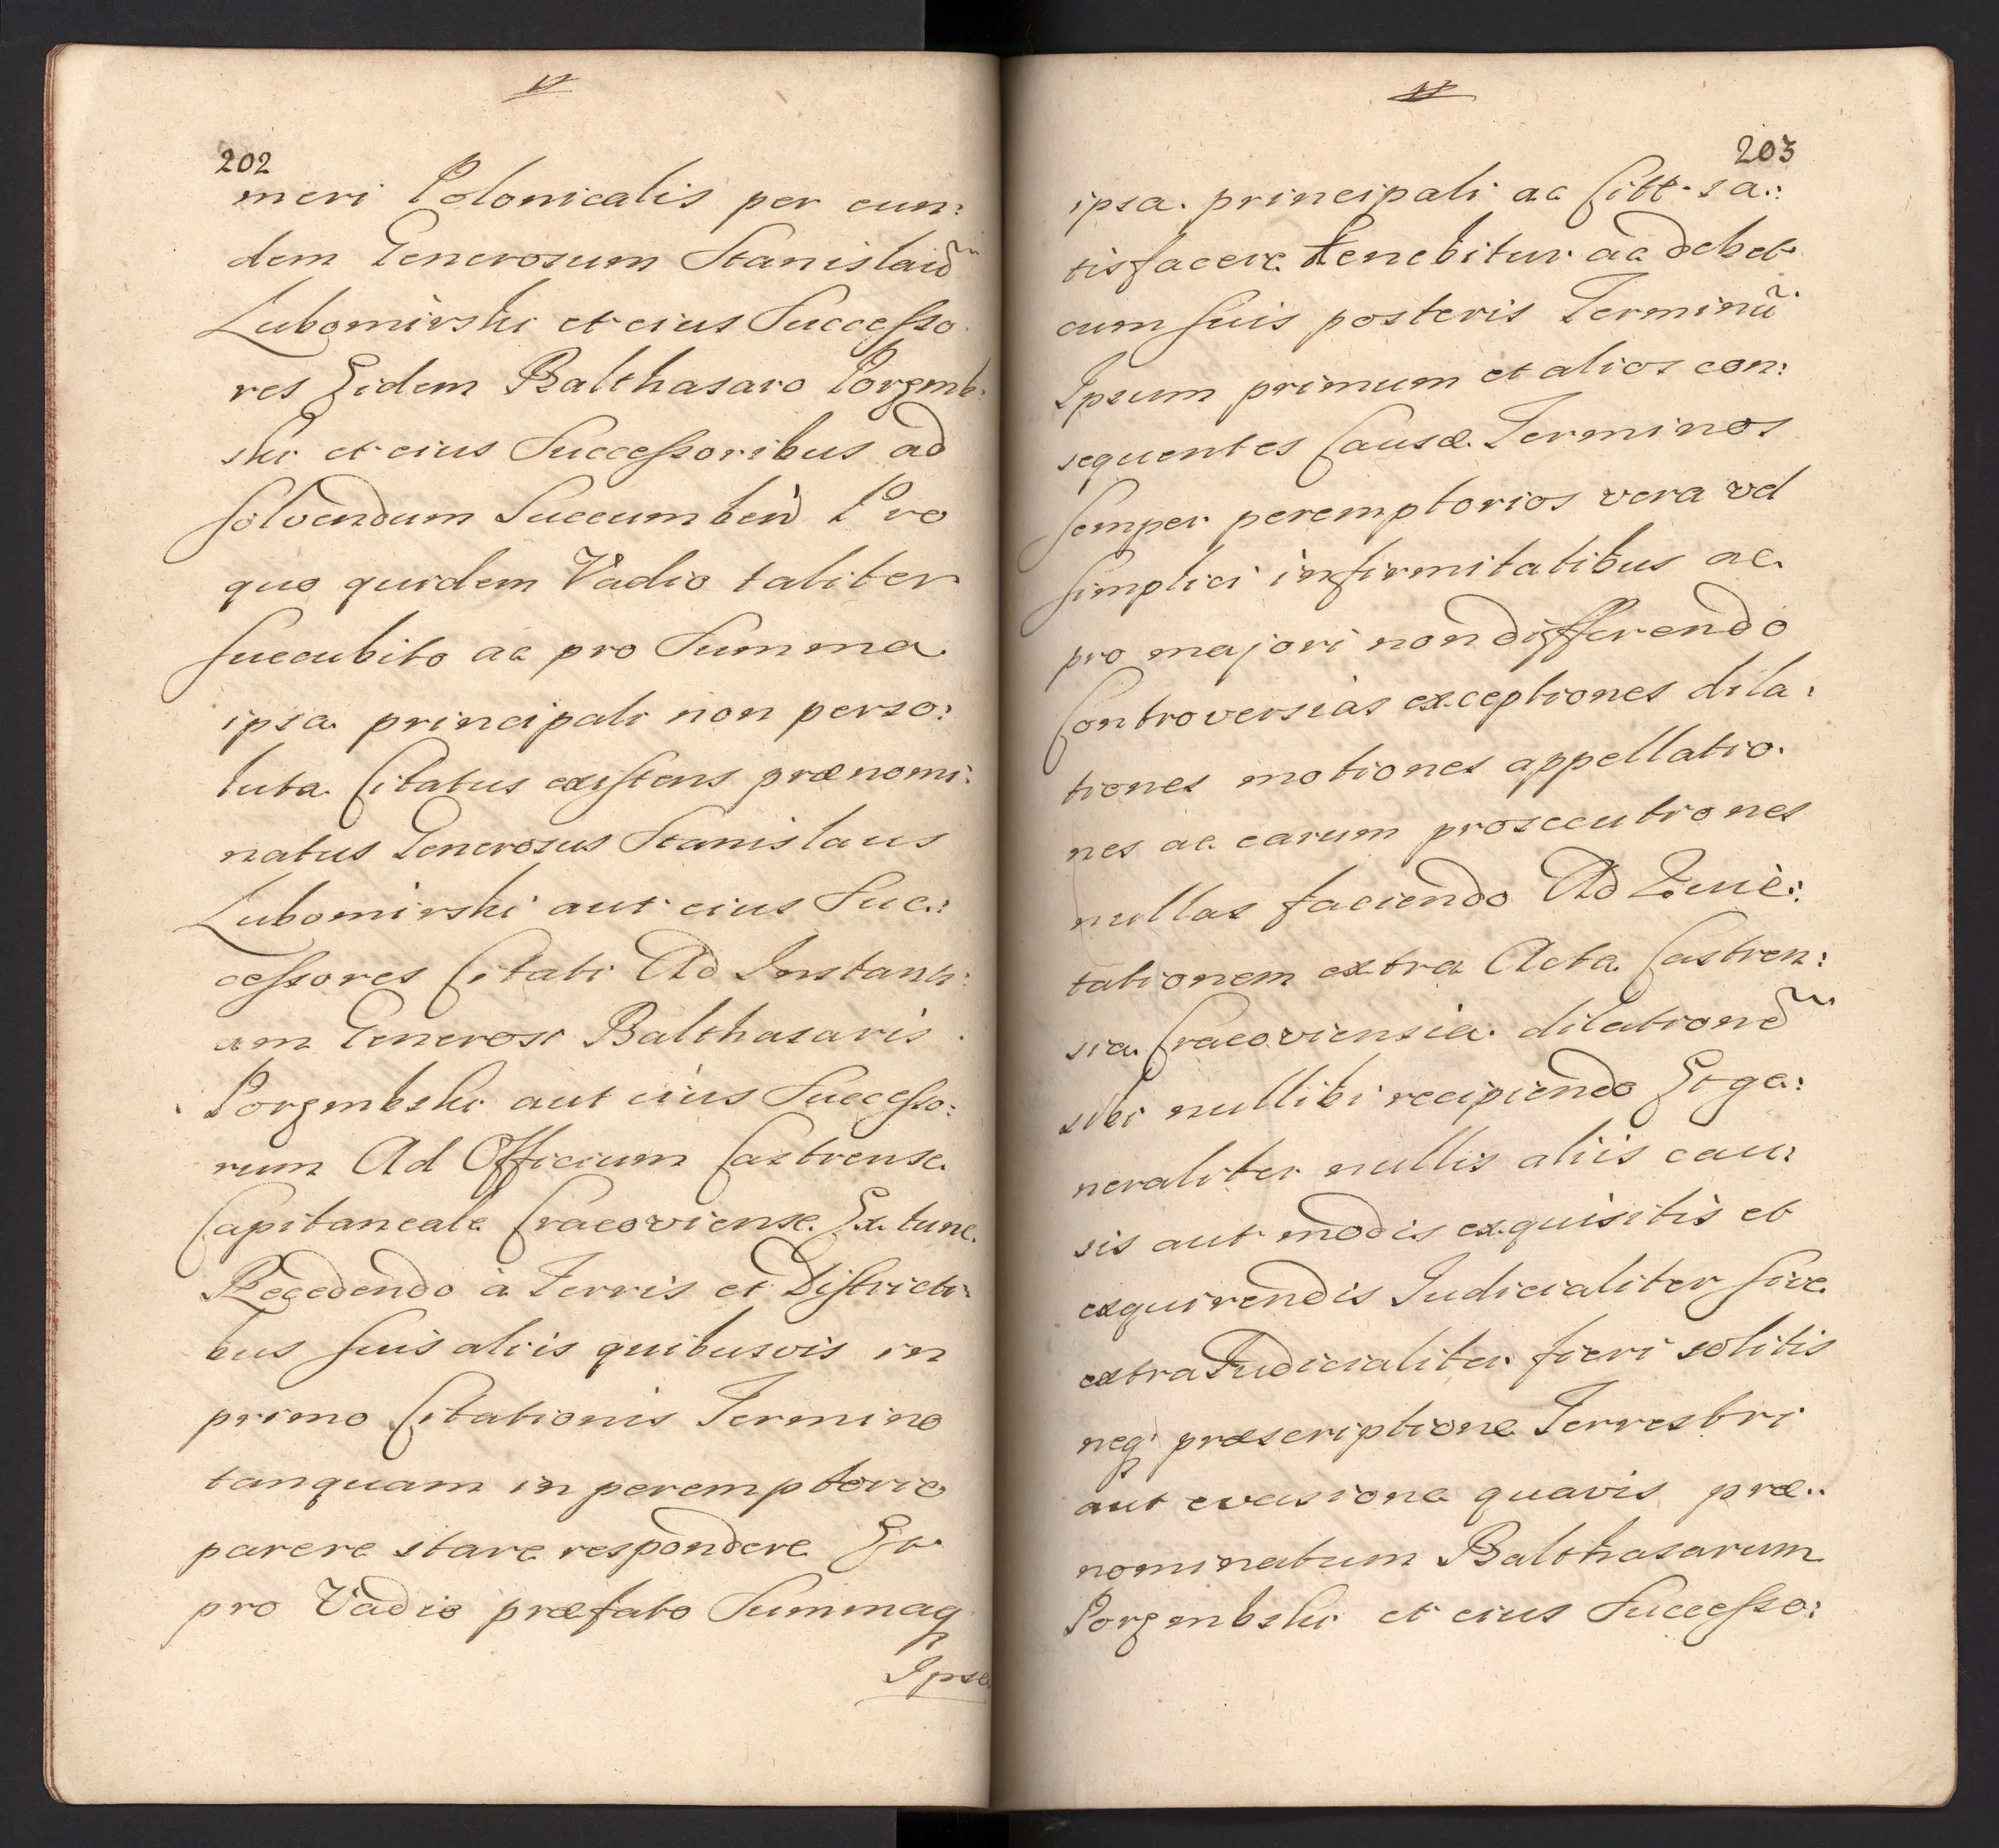 202
meri Polonicalis per eun:
dem Generosum Stanislaũ
Lubomirski et eius Successo
res Eidem Balthasaro Porembs
ski et eius Successoribus ad
solvendum Succumben̄d Pro
quo quidem Vadio taliter
succubito ac pro Summa
ipsa principali non perso:
luta Citatus existens prænomi:
natus Generosus Stanislaus
Lubomirski aut eius Suc:
cessores Citati Ad Instanti:
am Generosi Balthasaris
Porembski aut eius Successo:
rum Ad Officium Castrense
Capitaneale Cracoviense Ex tunc
Recedendo à Terris et Districti
bus suis aliis quibusvis in
primo Citationis Termino
tanquam in peremptorio
parere stare respondere Et
pro Vadio præfato Summaq
Ipsa
203
ipsa principali ac Citt. sa:
tisfacere tenebitur ac debet
cum suis posteris Terminũ
Ipsum primum et alios con:
sequentes Causæ Terminos
semper peremptorios vera vel
simplici infirmitatibus ac
pro majori non differendo
Controversias exceptiones dila:
tiones motiones appellatio
nes ac earum prosecutiones
nullas faciendo Ad Eme:
tationem extra Acta Castren:
sia Cracoviensia dilationẽ
sibi nullibi recipiendo Et ge:
neraliter nullis aliis cau:
sis aut modis exquisitis et
exquirendis Judicialiter sive
extra Judicialiter fieri solitis
neq præscriptione Terrestri
aut evasione quavis præ:
nominatum Balthasarum
Porembski et eius Successo: